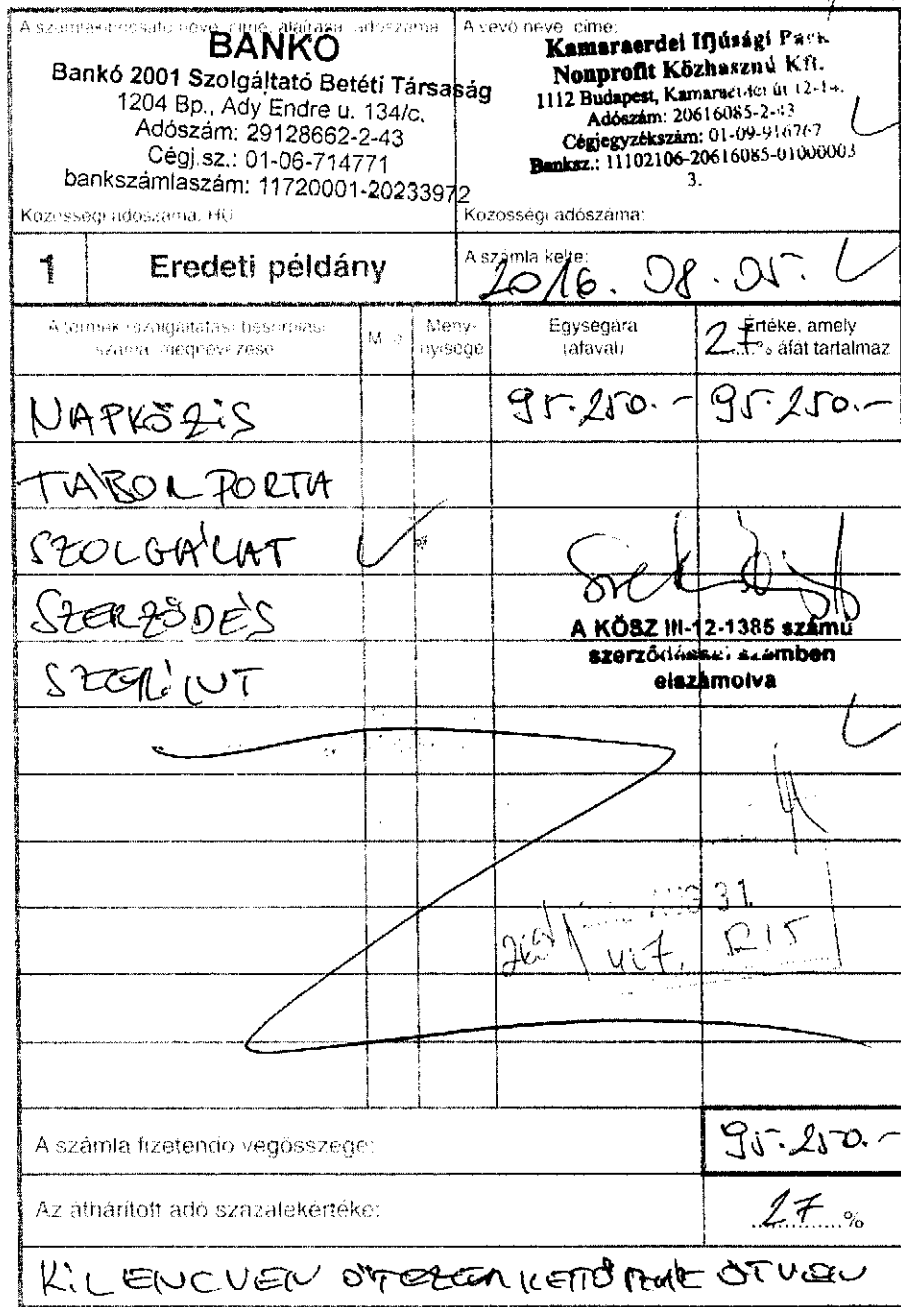 A számlakibocsátó neve, címe, aláírása, adószáma
BANKÓ
Bankó 2001 Szolgáltató Betéti Társaság
1204 Bp., Ady Endre u. 134/c.
Adószám: 29128662-2-43
Cégj.sz.: 01-06-714771
bankszámlaszám: 11720001-20233972
Közösségi adószáma: HU
A vevő neve, címe:
Kamaraerdei Ifjúsági Park
Nonprofit Közhasznú Kft.
1112 Budapest, Kamaraerdei út 12-14.
Adószám: 20616085-2-43
Cégjegyzékszám: 01-09-916767
Banksz.: 11102106-20616085-01000003
3.
Közösségi adószáma:
1 Eredeti példány
A számla kelte:
2016. 08. 05.
A termék (szolgáltatás) besorolási száma, megnevezése
Menynyisége
Egységára (áfával)
27% Értéke, amely áfát tartalmaz
NAPKÖZIS 95.250.- 95.250.-
TÁBOR PORTA
SZOLGÁLAT
SZERZŐDÉS
SZERINT
A KÖSZ III-12-1385 számú
szerződéssel számben
elszámolva
31.
A számla fizetendő végösszege: 95.250.-
Az áthárított adó százalékértéke: 27 %
KILENCVEN ÖTEZER KETTŐSZÁZ ÖTVEN